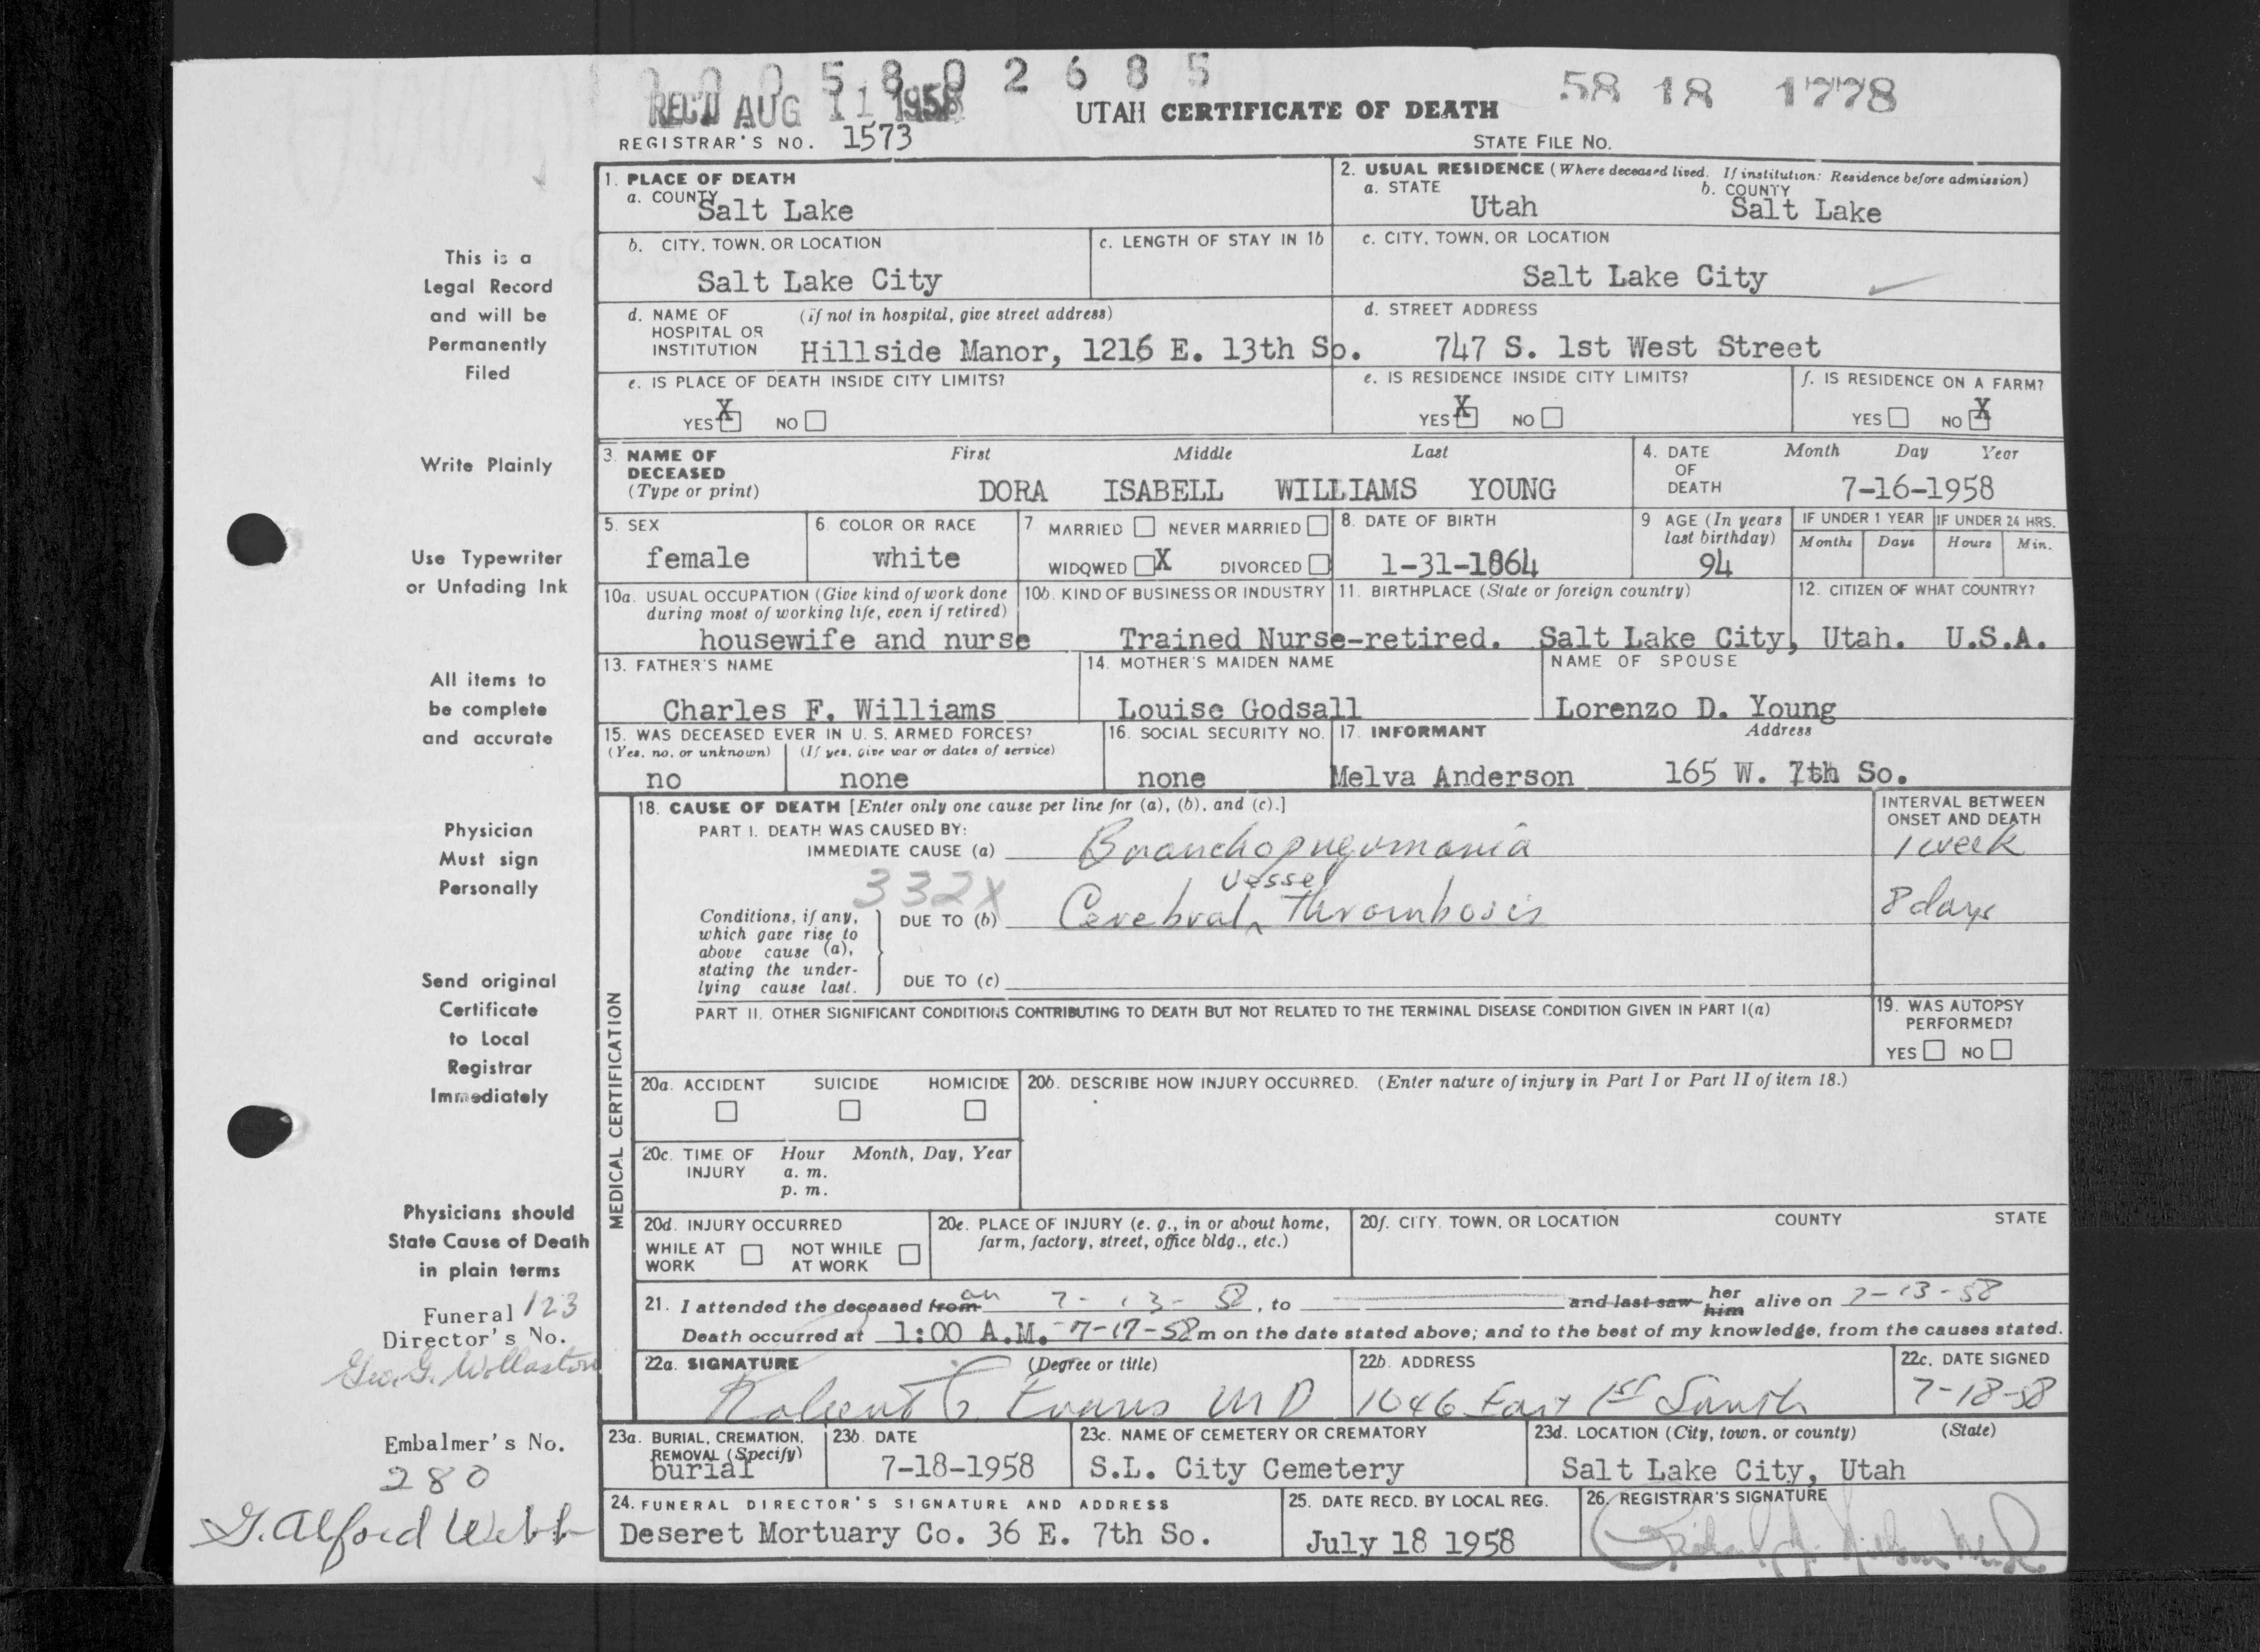 0 0 0 5 8 0 2 6 8 5
REC'D AUG 11 1958
58 18 1778
UTAH CERTIFICATE OF DEATH
REGISTRAR'S NO. 1573
STATE FILE NO.
1. PLACE OF DEATH
a. COUNTY
Salt Lake
2. USUAL RESIDENCE (Where deceased lived. If institution: Residence before admission)
a. STATE
Utah
b. COUNTY
Salt Lake
b. CITY, TOWN, OR LOCATION
Salt Lake City
c. LENGTH OF STAY IN 1b
c. CITY, TOWN, OR LOCATION
Salt Lake City
d. NAME OF HOSPITAL OR INSTITUTION
(if not in hospital, give street address)
Hillside Manor, 1216 E. 13th So.
d. STREET ADDRESS
747 S. 1st West Street
e. IS PLACE OF DEATH INSIDE CITY LIMITS?
YES X NO
e. IS RESIDENCE INSIDE CITY LIMITS?
YES X NO
f. IS RESIDENCE ON A FARM?
YES NO X
3. NAME OF DECEASED
(Type or print)
First Middle Last
DORA ISABELL WILLIAMS YOUNG
4. DATE OF DEATH
Month Day Year
7-16-1958
5. SEX
female
6. COLOR OR RACE
white
7. MARRIED NEVER MARRIED
WIDOWED X DIVORCED
8. DATE OF BIRTH
1-31-1864
9 AGE (In years last birthday)
94
IF UNDER 1 YEAR
Months Days
IF UNDER 24 HRS.
Hours Min.
10a. USUAL OCCUPATION (Give kind of work done during most of working life, even if retired)
housewife and nurse
10b. KIND OF BUSINESS OR INDUSTRY
Trained Nurse-retired.
11. BIRTHPLACE (State or foreign country)
Salt Lake City, Utah.
12. CITIZEN OF WHAT COUNTRY?
U.S.A.
13. FATHER'S NAME
Charles F. Williams
14. MOTHER'S MAIDEN NAME
Louise Godsall
NAME OF SPOUSE
Lorenzo D. Young
15. WAS DECEASED EVER IN U. S. ARMED FORCES?
(Yes, no, or unknown) (If yes, give war or dates of service)
no none
16. SOCIAL SECURITY NO.
none
17. INFORMANT Address
Melva Anderson 165 W. 7th So.
MEDICAL CERTIFICATION
18. CAUSE OF DEATH [Enter only one cause per line for (a), (b), and (c).]
INTERVAL BETWEEN ONSET AND DEATH
PART I. DEATH WAS CAUSED BY:
IMMEDIATE CAUSE (a) Bronchopneumonia 1 week
332X
Conditions, if any, which gave rise to above cause (a), stating the underlying cause last.
DUE TO (b) Cerebral vessel Thrombosis 8 days
DUE TO (c)
PART II. OTHER SIGNIFICANT CONDITIONS CONTRIBUTING TO DEATH BUT NOT RELATED TO THE TERMINAL DISEASE CONDITION GIVEN IN PART I(a)
19. WAS AUTOPSY PERFORMED?
YES NO
20a. ACCIDENT SUICIDE HOMICIDE
20b. DESCRIBE HOW INJURY OCCURRED. (Enter nature of injury in Part I or Part II of item 18.)
20c. TIME OF INJURY
Hour Month, Day, Year
a. m.
p. m.
20d. INJURY OCCURRED
WHILE AT WORK NOT WHILE AT WORK
20e. PLACE OF INJURY (e. g., in or about home, farm, factory, street, office bldg., etc.)
20f. CITY, TOWN, OR LOCATION COUNTY STATE
21. I attended the deceased from on 7-13-58, to and last saw her him alive on 7-13-58
Death occurred at 1:00 A.M. 7-17-58 m on the date stated above; and to the best of my knowledge, from the causes stated.
22a. SIGNATURE (Degree or title)
Robert G. Evans MD
22b. ADDRESS
1046 East 1st South
22c. DATE SIGNED
7-18-58
23a. BURIAL, CREMATION, REMOVAL (Specify)
burial
23b. DATE
7-18-1958
23c. NAME OF CEMETERY OR CREMATORY
S.L. City Cemetery
23d. LOCATION (City, town, or county) (State)
Salt Lake City, Utah
24. FUNERAL DIRECTOR'S SIGNATURE AND ADDRESS
Deseret Mortuary Co. 36 E. 7th So.
25. DATE RECD. BY LOCAL REG.
July 18 1958
26. REGISTRAR'S SIGNATURE
This is a
Legal Record
and will be
Permanently
Filed
Write Plainly
Use Typewriter
or Unfading Ink
All items to
be complete
and accurate
Physician
Must sign
Personally
Send original
Certificate
to Local
Registrar
Immediately
Physicians should
State Cause of Death
in plain terms
Funeral 123
Director's No.
Geo. G. Wollaston
Embalmer's No.
280
G. Alford Webb